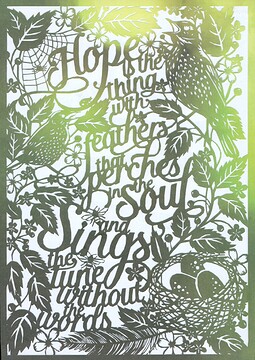 Hope
is the
thing
with
feathers
that
perches
in the
Soul
and
Sings
the
tune
without
the
words